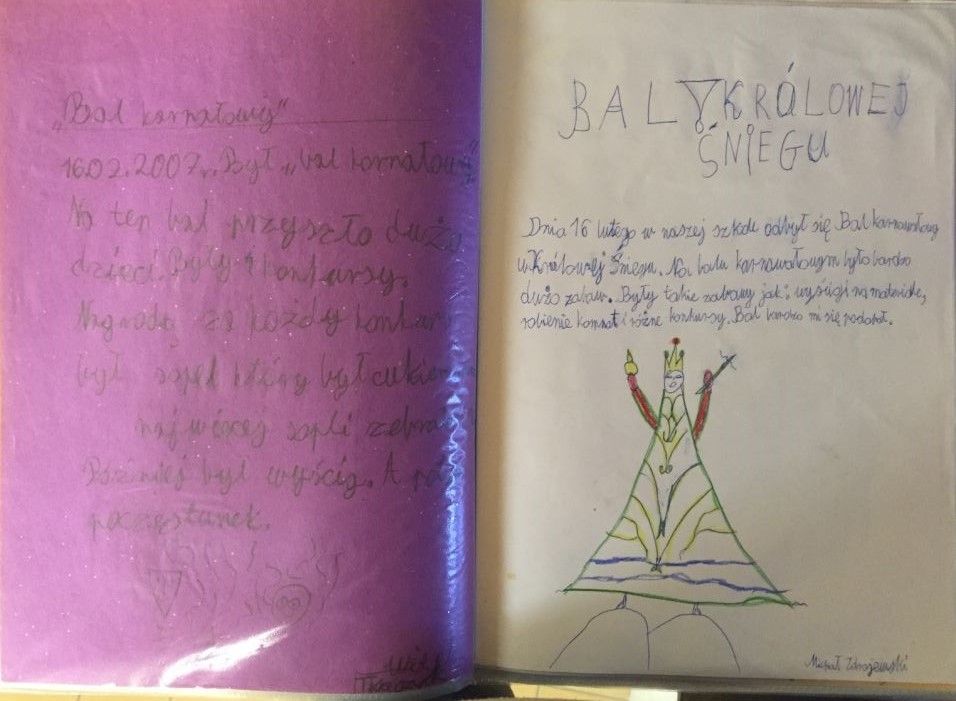 „Bal karnałowy"
16.02.2007r. Był „bal karnałowy"
Na ten bal przyszło dużo
dzieci. Były 4 konkursy.
Nagrodą za każdy konkurs
był sopel który był cukier
najwięcej sopli
Później był wyścig. A
poczęstunek.
BAL U KRÓLOWEJ
ŚNIEGU
Dnia 16 lutego w naszej szkole odbył się Bal karnawałowy
u Królowej Śniegu. Na balu karnawałowym było bardzo
dużo zabaw. Były takie zabawy jak: wyścigi na materiale,
robienie komnat i różne konkursy. Bal bardzo mi się podobał.
Michał Zdrojewski